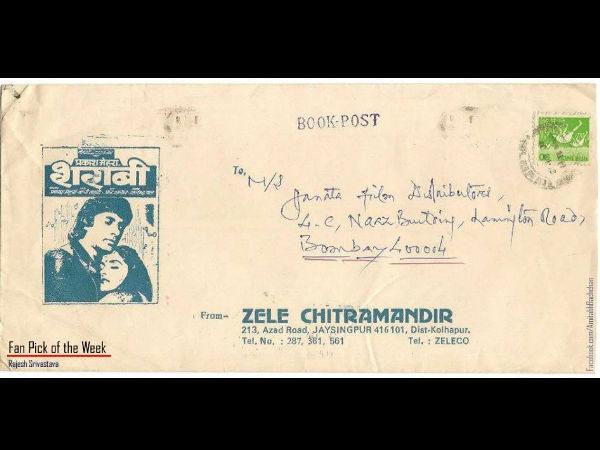 BOOK-POST
प्रकाश मेहरा
शराबी
To,
M/S
Janata Film Distributors,
4-C, Naaz Building, Lamington Road,
Bombay 400004
From- ZELE CHITRAMANDIR
213, Azad Road, JAYSINGPUR 416101, Dist-Kolhapur.
Tel. No. : 287, 361, 561 Tel. : ZELECO
Fan Pick of the Week
Rajesh Srivastava
Facebook.com/AmitabhBachchan